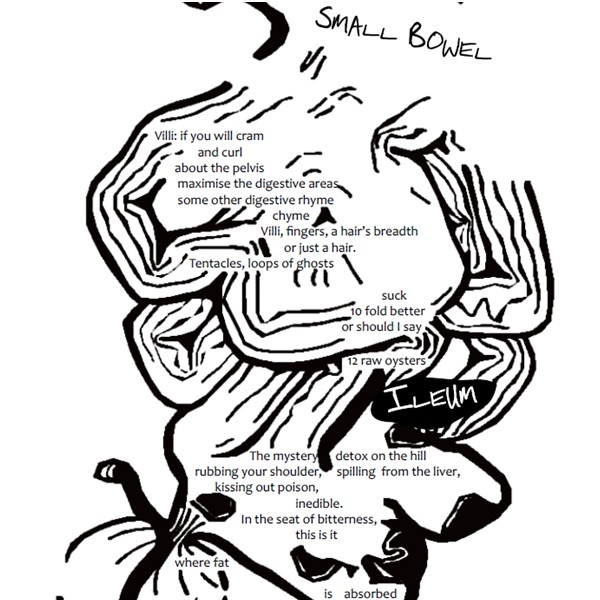 SMALL BOWEL
Villi: if you will cram
and curl
about the pelvis
maximise the digestive areas
some other digestive rhyme
chyme
Villi, fingers, a hair's breadth
or just a hair.
Tentacles, loops of ghosts
suck
10 fold better
or should I say
12 raw oysters
ILEUM
The mystery detox on the hill
rubbing your shoulder, spilling from the liver,
kissing out poison,
inedible.
In the seat of bitterness,
this is it
where fat
is absorbed